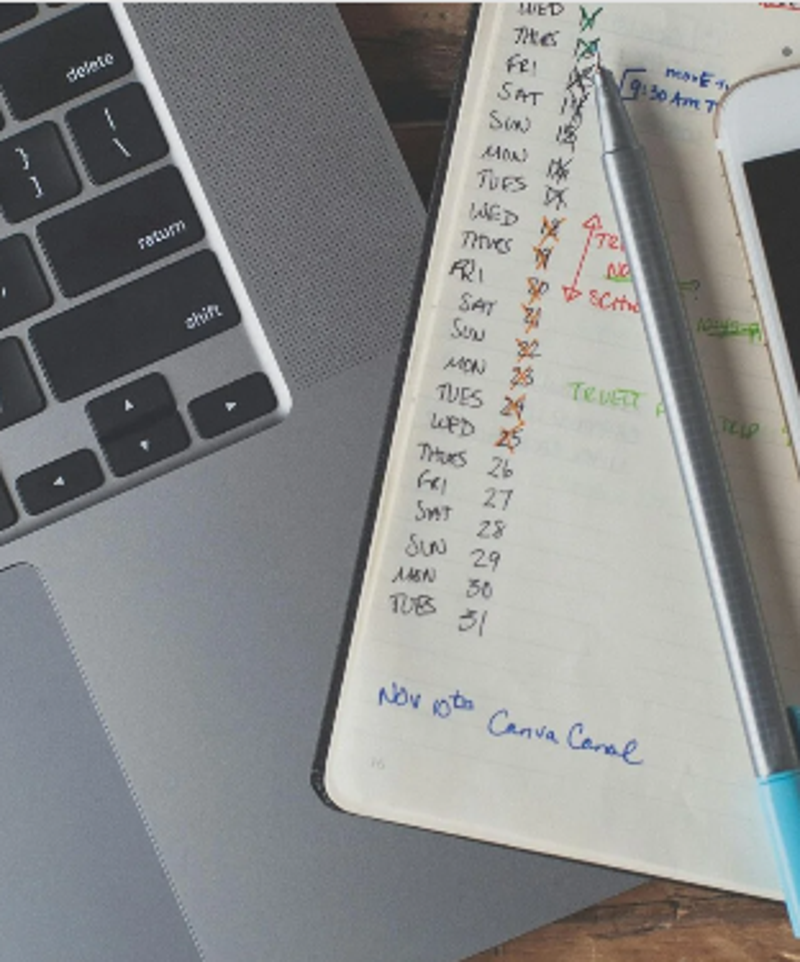 delete
}
]
|
\
return
shift
WED
THURS
FRI
MOVE
9:30 AM
SAT
SUN
MON
TUES
WED 18
THURS 19
FRI 20
SCH
SAT 21
SUN 22
MON 23
TUES 24
TRUETT
TRIP
WED 25
THURS 26
FRI 27
SAT 28
SUN 29
MON 30
TUES 31
Nov 10th Canva Canal